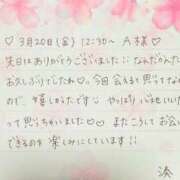 ♡ 3月20日(金) 12:30〜 A様 ♡
先日はありがとうございました!! なんだかんだ
お久しぶりでしたね♡ 今回会えると思ってなかった
ので、嬉しかったです☺ やっぱり心地いいな
って思っちゃいました♡ またこうしてお会い
できるのを楽しみにしています!!
湊